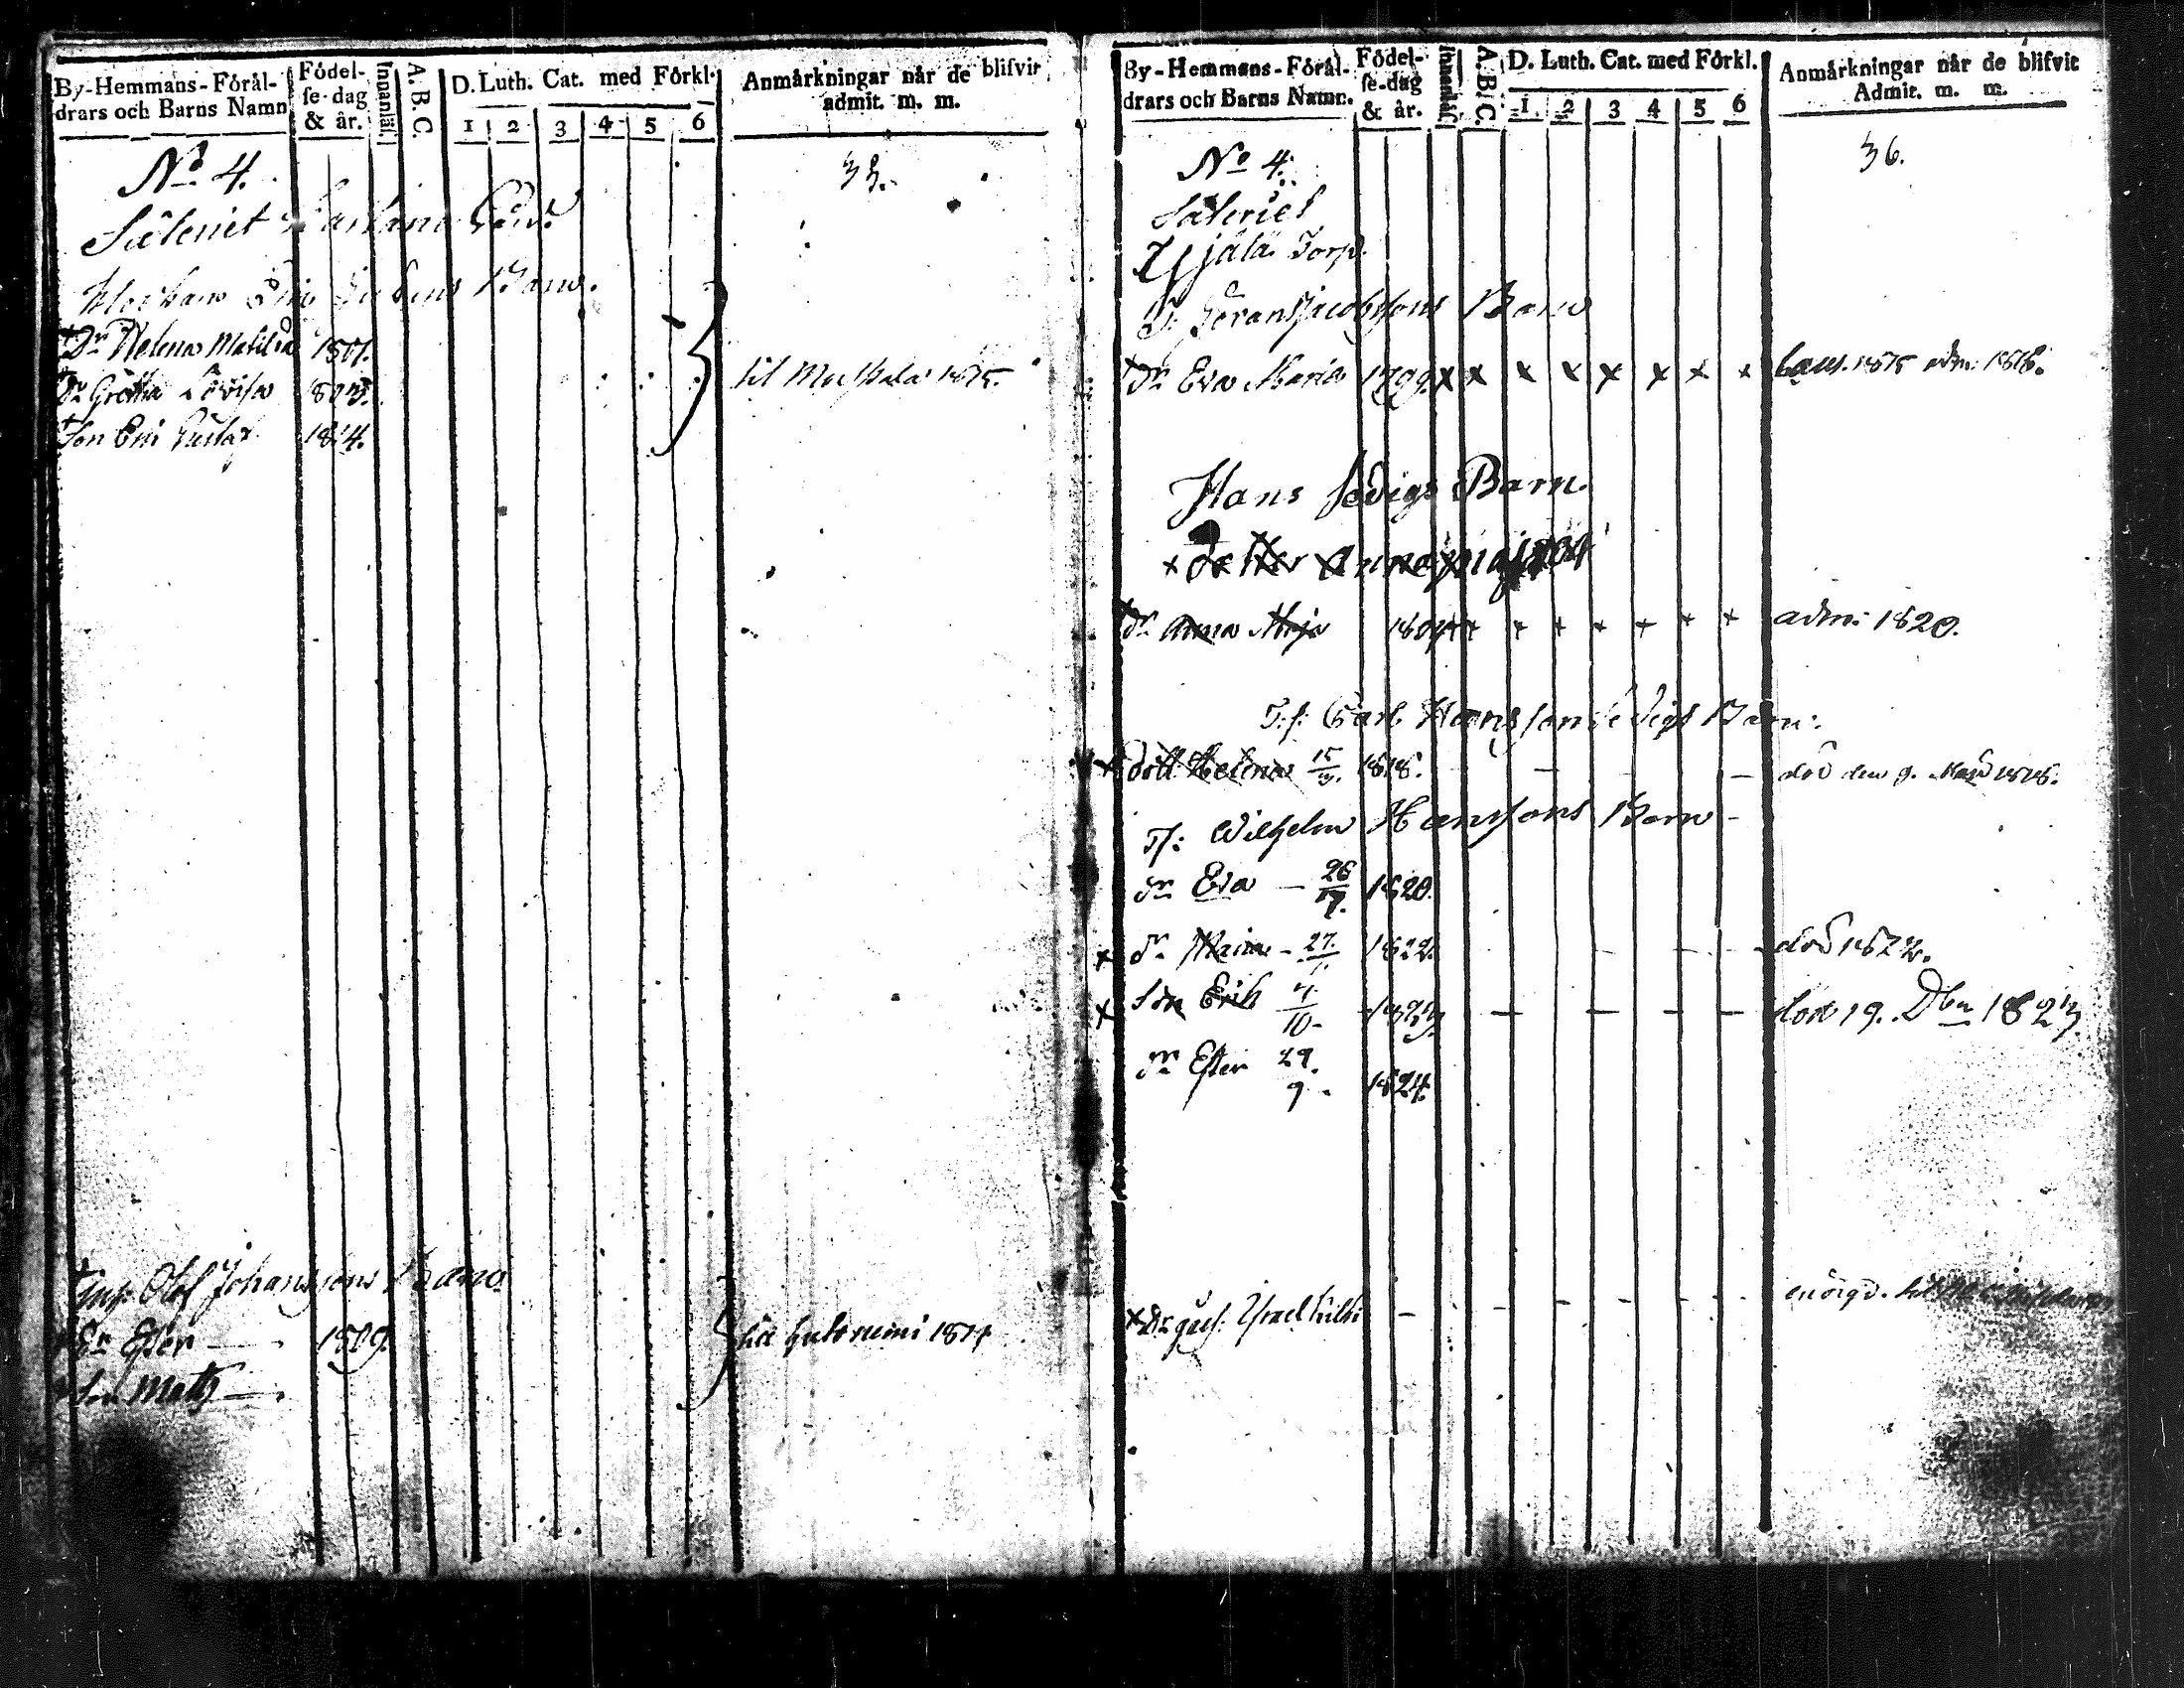 By-Hemmans-Förål-
drars och Barns Namn
Födel-
se-dag
& år.
Innanläs.
A. B. C.
D. Luth. Cat. med Förkl.
1 2 3 4 5 6
Anmårkningar når de blifvit
admit. m. m.
No 4.
Säteriet
Barn.
Dr Helena Matilda 1807.
Dr Gretha Lovisa 1803. til 1815.
Son Eric Gustaf 1814.
Olof Johanssons Barn
Dr Ester — 1809. till 1814
Son Matts —
By-Hemmans-Förål-
drars och Barns Namn.
Födel-
se-dag
& år.
Innanläs.
A. B. C.
D. Luth. Cat. med Förkl.
1 2 3 4 5 6
Anmårkningar når de blifvit
Admit. m. m.
No 4.
36.
Säteriet
Torp.
Göran Jacobssons Barn
Dr Eva Maria 1799. x x x x x x x x 1815 adm: 1818.
Hans Sevigs Barn.
x dotter Anna Maja 1804
dr Anna Maja 1804 x x x x x x x x adm: 1820.
T:f: Carl Hansson Sevigs Barn:
x dott: Helena 15/3. 1818. — — död den 9. 1818.
Tf: Wilhelm Hanssons Barn
dr Eva — 26/7. 1820.
x dr Maria - 27/1. 1822. död 1822.
x Son Erik /10- 1823. — — — — död 19. Dbr 1823.
dr Ester 29/9. 1824.
x Israel —